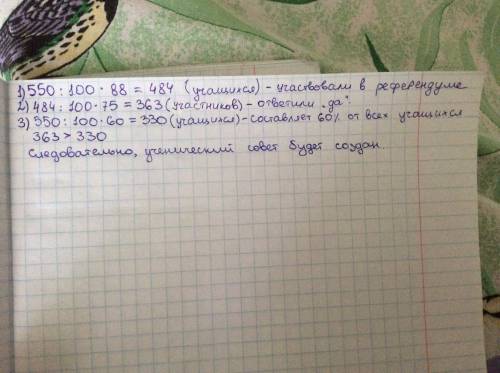 1) 550 : 100 · 88 = 484 (учащихся) - участвовали в референдуме
2) 484 : 100 · 75 = 363 (участников) - ответили „да"
3) 550 : 100 · 60 = 330 (учащихся) - составляет 60% от всех учащихся
363 > 330
Следовательно, ученический совет будет создан.